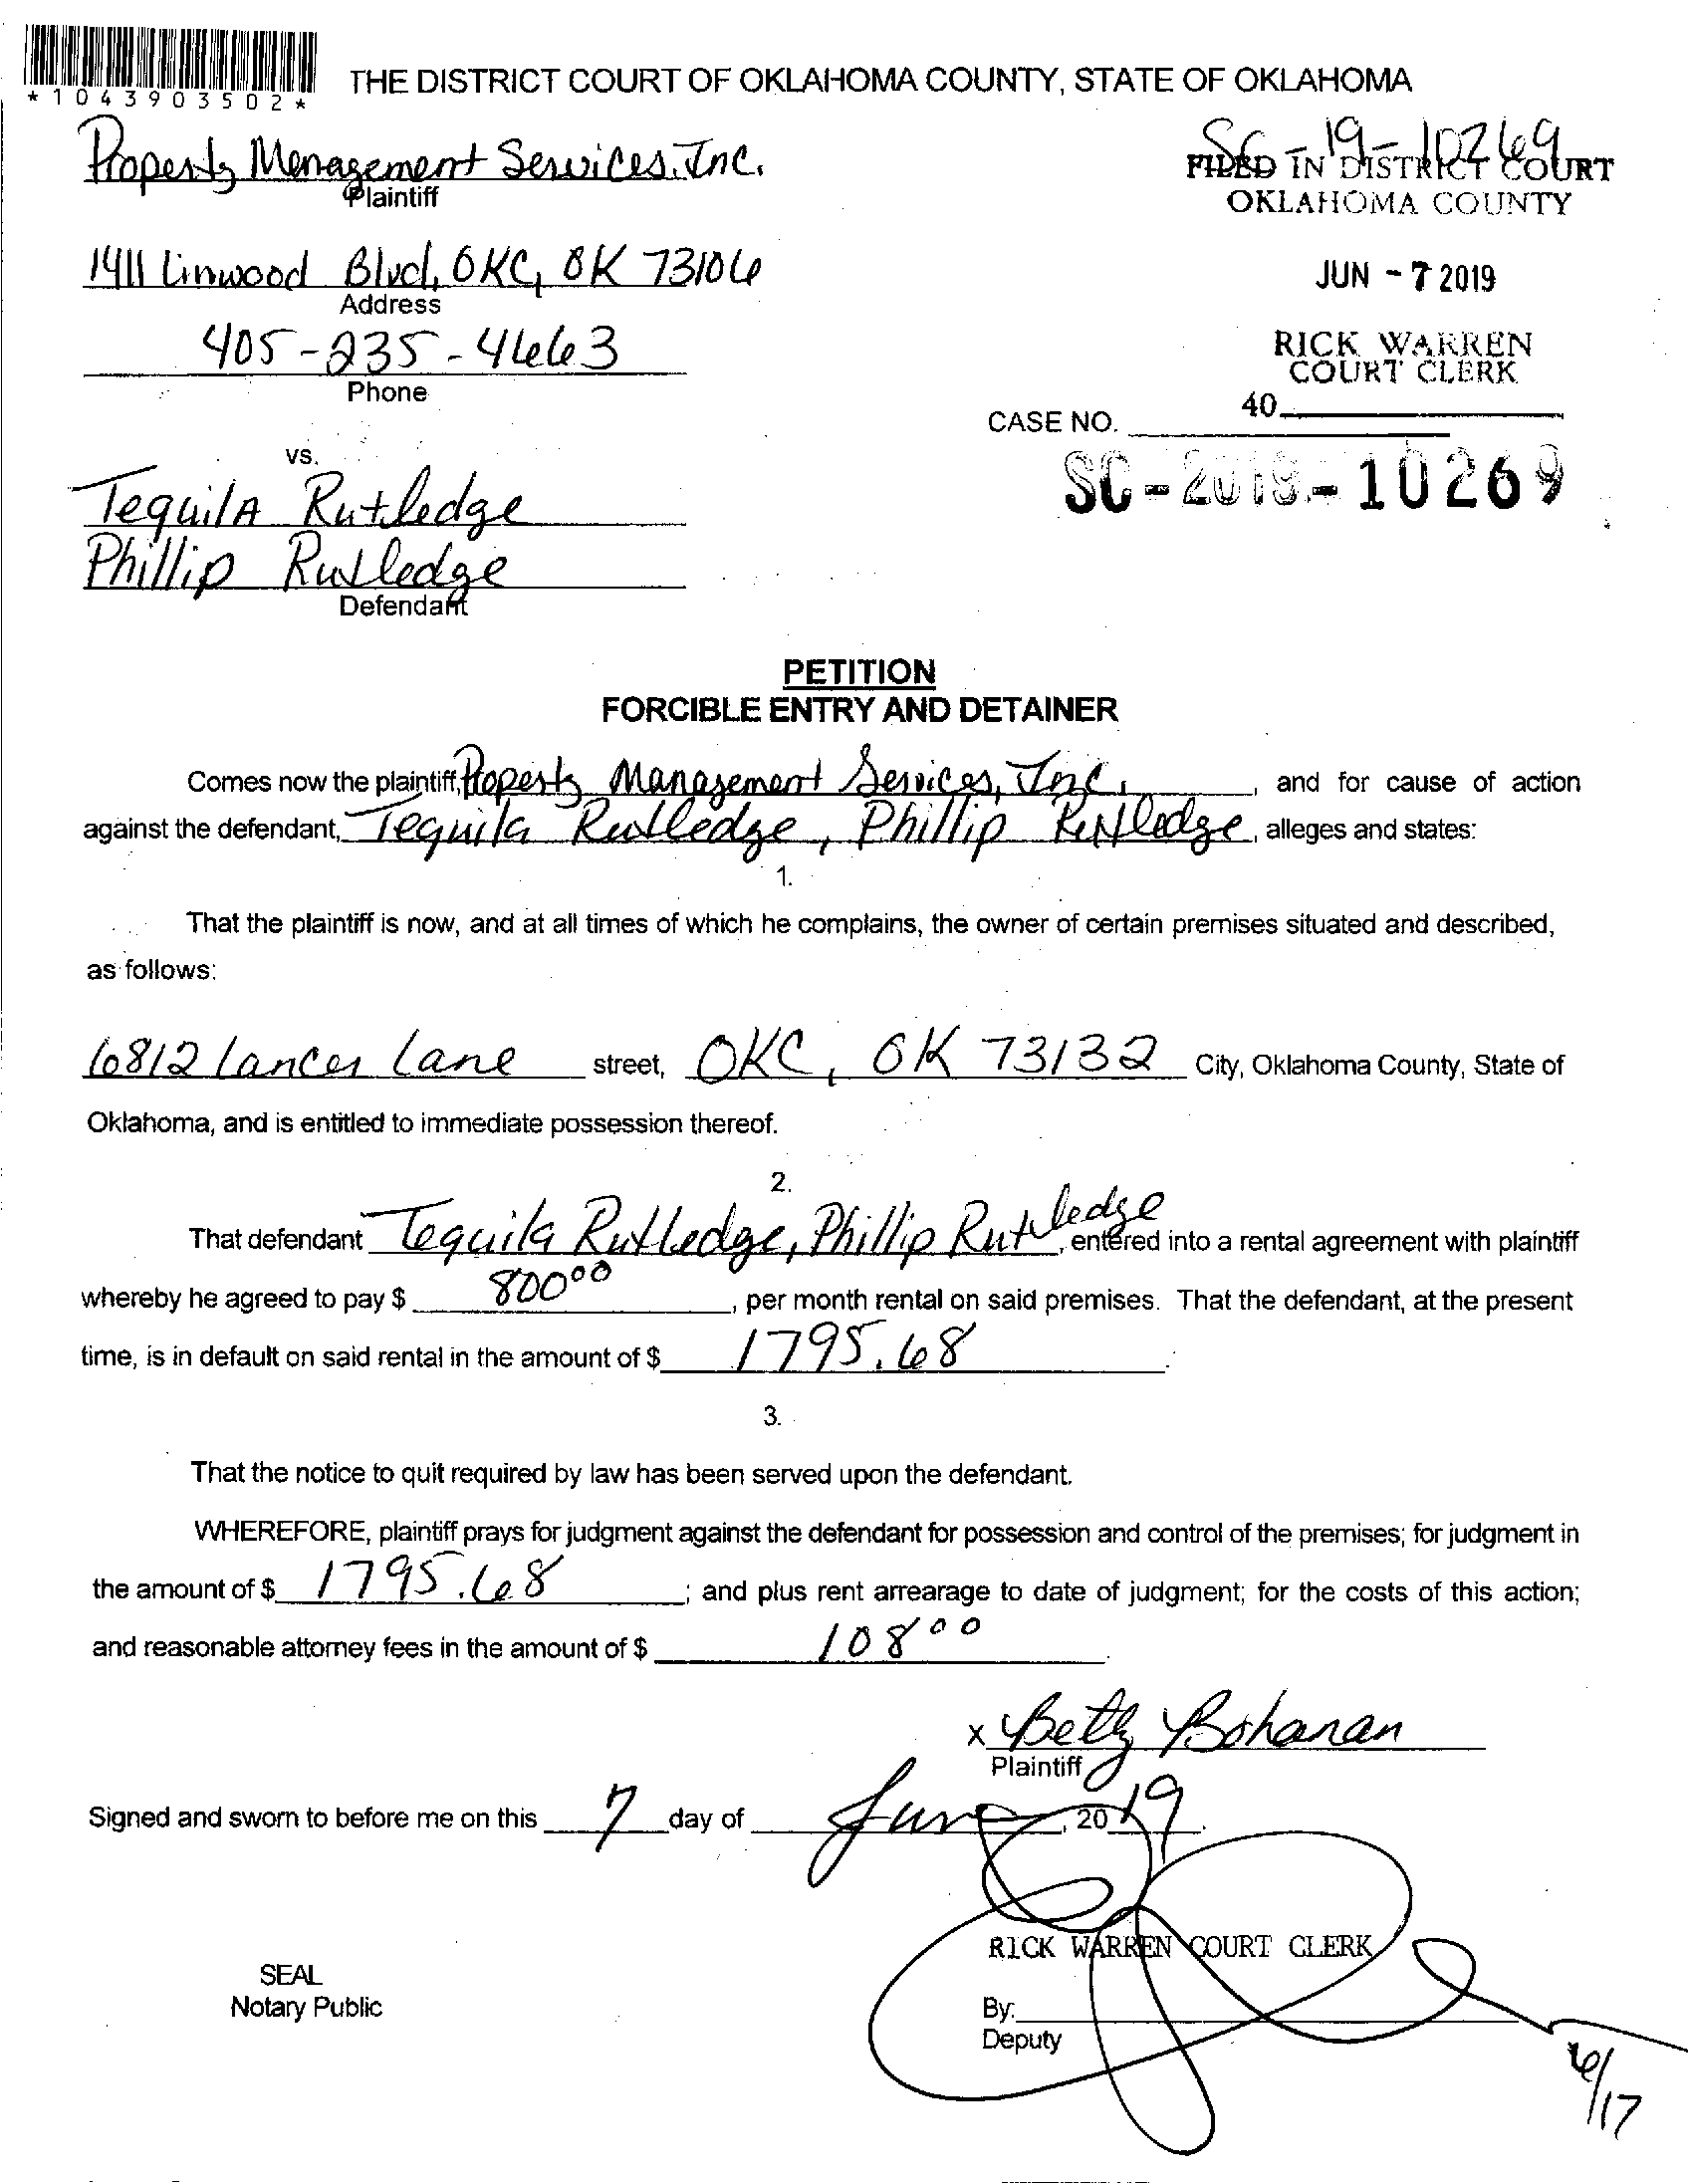 *1043903502*
THE DISTRICT COURT OF OKLAHOMA COUNTY, STATE OF OKLAHOMA
Property Management Services, Inc.
Plaintiff
SC-19-10269
FILED IN DISTRICT COURT
OKLAHOMA COUNTY
1411 Linwood Blvd, OKC, OK 73106
Address
JUN - 7 2019
405-235-4663
Phone
RICK WARREN
COURT CLERK
40
CASE NO.
SC-2019-10269
vs.
Tequila Rutledge
Phillip Rutledge
Defendant
PETITION
FORCIBLE ENTRY AND DETAINER
Comes now the plaintiff, Property Management Services, Inc., and for cause of action
against the defendant, Tequila Rutledge, Phillip Rutledge, alleges and states:
1.
That the plaintiff is now, and at all times of which he complains, the owner of certain premises situated and described,
as follows:
6812 Lancer Lane street, OKC, OK 73132 City, Oklahoma County, State of
Oklahoma, and is entitled to immediate possession thereof.
2.
That defendant Tequila Rutledge, Phillip Rutledge, entered into a rental agreement with plaintiff
whereby he agreed to pay $ 800 00, per month rental on said premises. That the defendant, at the present
time, is in default on said rental in the amount of $ 1795.68.
3.
That the notice to quit required by law has been served upon the defendant.
WHEREFORE, plaintiff prays for judgment against the defendant for possession and control of the premises; for judgment in
the amount of $ 1795.68; and plus rent arrearage to date of judgment; for the costs of this action;
and reasonable attorney fees in the amount of $ 108 00.
x Betty Bohanan
Plaintiff
Signed and sworn to before me on this 7 day of June, 20 19.
RICK WARREN COURT CLERK
SEAL
Notary Public
By:
Deputy
6/17